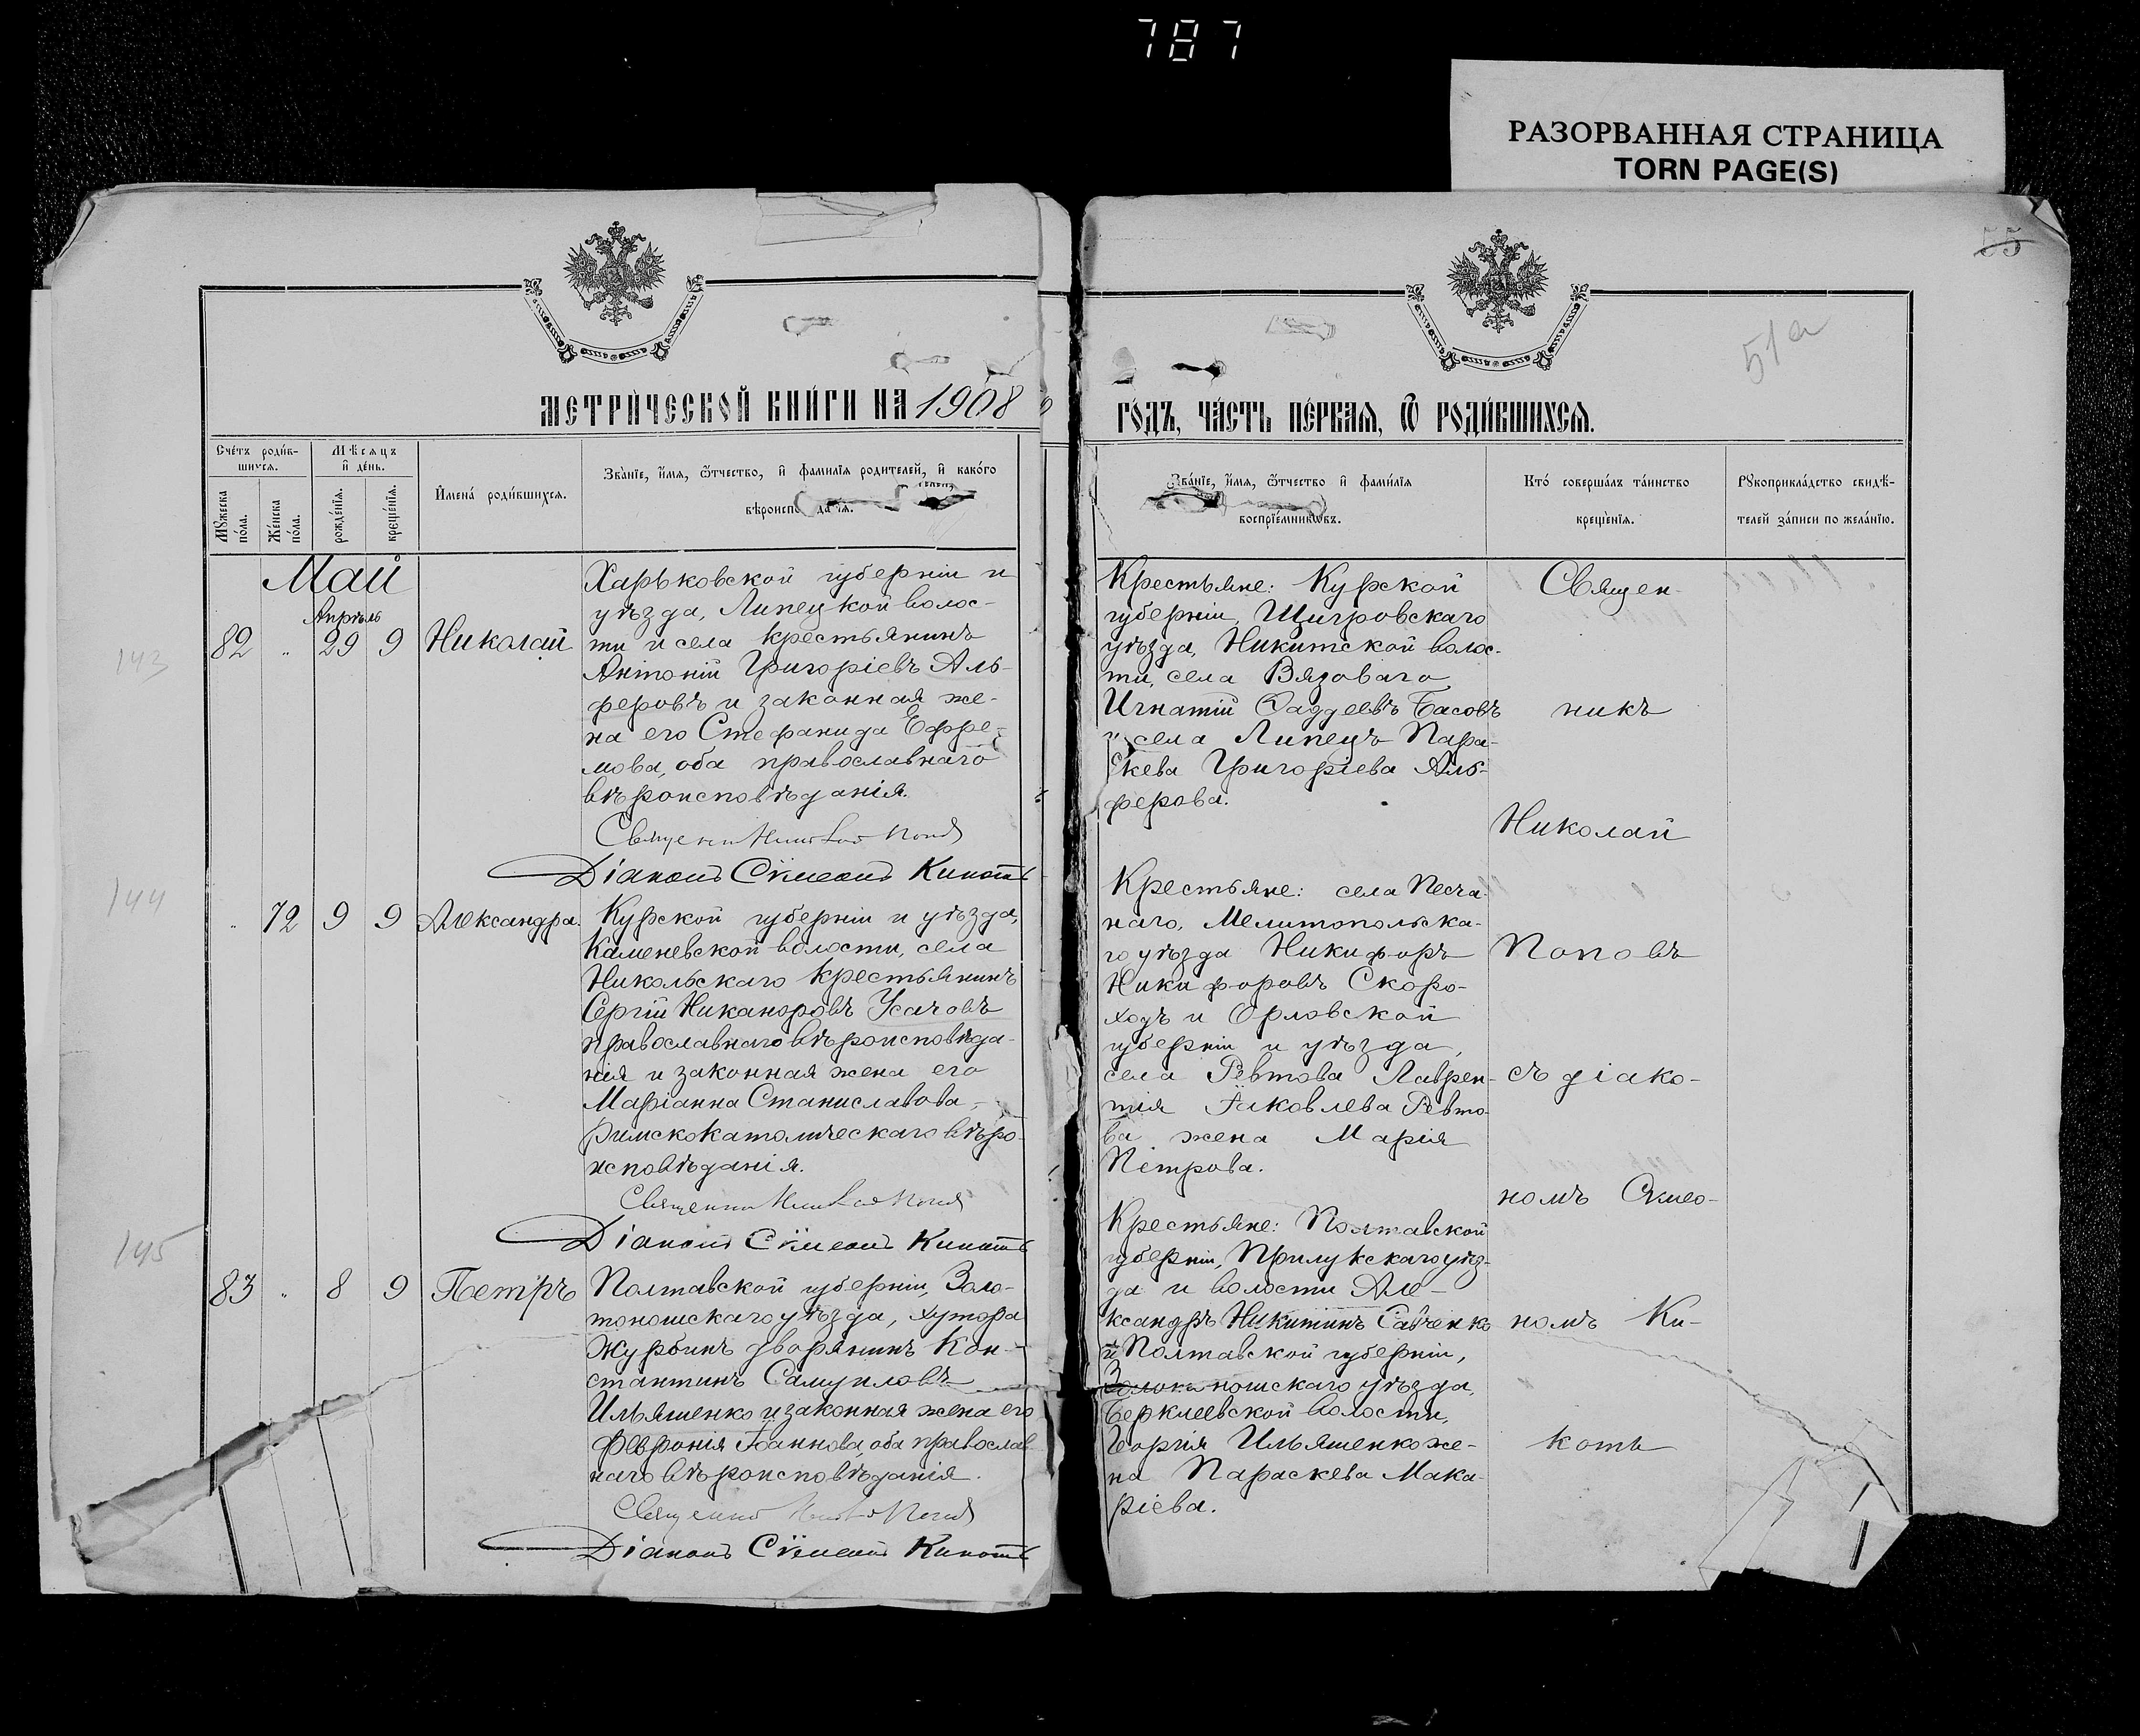 787
РАЗОРВАННАЯ СТРАНИЦА
TORN PAGE(S)
55
51а
МЕТРИЧЕСКОЙ КНИГИ НА 1908
ГОДЪ, ЧАСТЬ ПЕРВАЯ, Ѿ РОДИВШИХСЯ.
Счетъ родив-
шихся.
Мѣсяцъ
и день.
Мужеска
пола.
Женска
пола.
рожденія.
крещенія.
Имена родившихся.
Званіе, имя, ѿчество, и фамилія родителей, и какого
вѣроисповѣданія.
Званіе, имя, ѿчество и фамилія
воспріемниковъ.
Кто совершалъ таинство
крещенія.
Рукоприкладство свидѣ-
телей записи по желанію.
Май
Апрѣль
143
82 " 29 9 Николай
Харьковской губерніи и
уѣзда, Липецкой волос-
ти и села крестьянинъ
Антоній Григоріевъ Аль-
феровъ и законная же-
на его Стефанида Ефре-
мова, оба православнаго
вѣроисповѣданія.
Священникъ Николай Поповъ
Діаконъ Сѵмеонъ Кикоть
Крестьяне: Курской
губерніи, Щигровскаго
уѣзда, Никитской волос-
ти, села Вязоваго
Игнатій Фаддеевъ Басовъ
и села Липецъ Пара-
скева Григоріева Аль-
ферова.
144
" 72 9 9 Александра.
Курской губерніи и уѣзда,
Каменевской волости, села
Никольскаго крестьянинъ
Сергій Никаноровъ Усачовъ
православнаго вѣроисповѣда-
нія и законная жена его
Маріанна Станиславова,
Римскокатолическаго вѣро-
исповѣданія.
Священникъ Николай Поповъ
Діаконъ Сѵмеонъ Кикоть
Крестьяне: села Песча-
наго, Мелитопольска-
го уѣзда Никифоръ
Никифоровъ Скоро-
ходъ и Орловской
губерніи и уѣзда,
села Ревтова Лаврен-
тія Іаковлева Ревто-
ва жена Марія
Петрова.
145
83 " 8 9 Петръ
Полтавской губерніи, Золо-
тоношскаго уѣзда, хутора
Журбинъ дворянинъ Кон-
стантинъ Самуиловъ
Ильяшенко и законная жена его
Февронія Іоаннова, оба православ-
наго вѣроисповѣданія.
Священникъ Николай Поповъ
Діаконъ Сѵмеонъ Кикоть
Крестьяне: Полтавской
губерніи, Прилукскаго уѣз-
да и волости Але-
ксандръ Никитинъ Савченко
и Полтавской губерніи,
Золотоношскаго уѣзда,
Беркліевской волости,
Георгія Ильяшенко же-
на Параскева Мака-
ріева.
Священ-
никъ
Николай
Поповъ
съ діако-
номъ Сѵмео-
номъ Ки-
коть